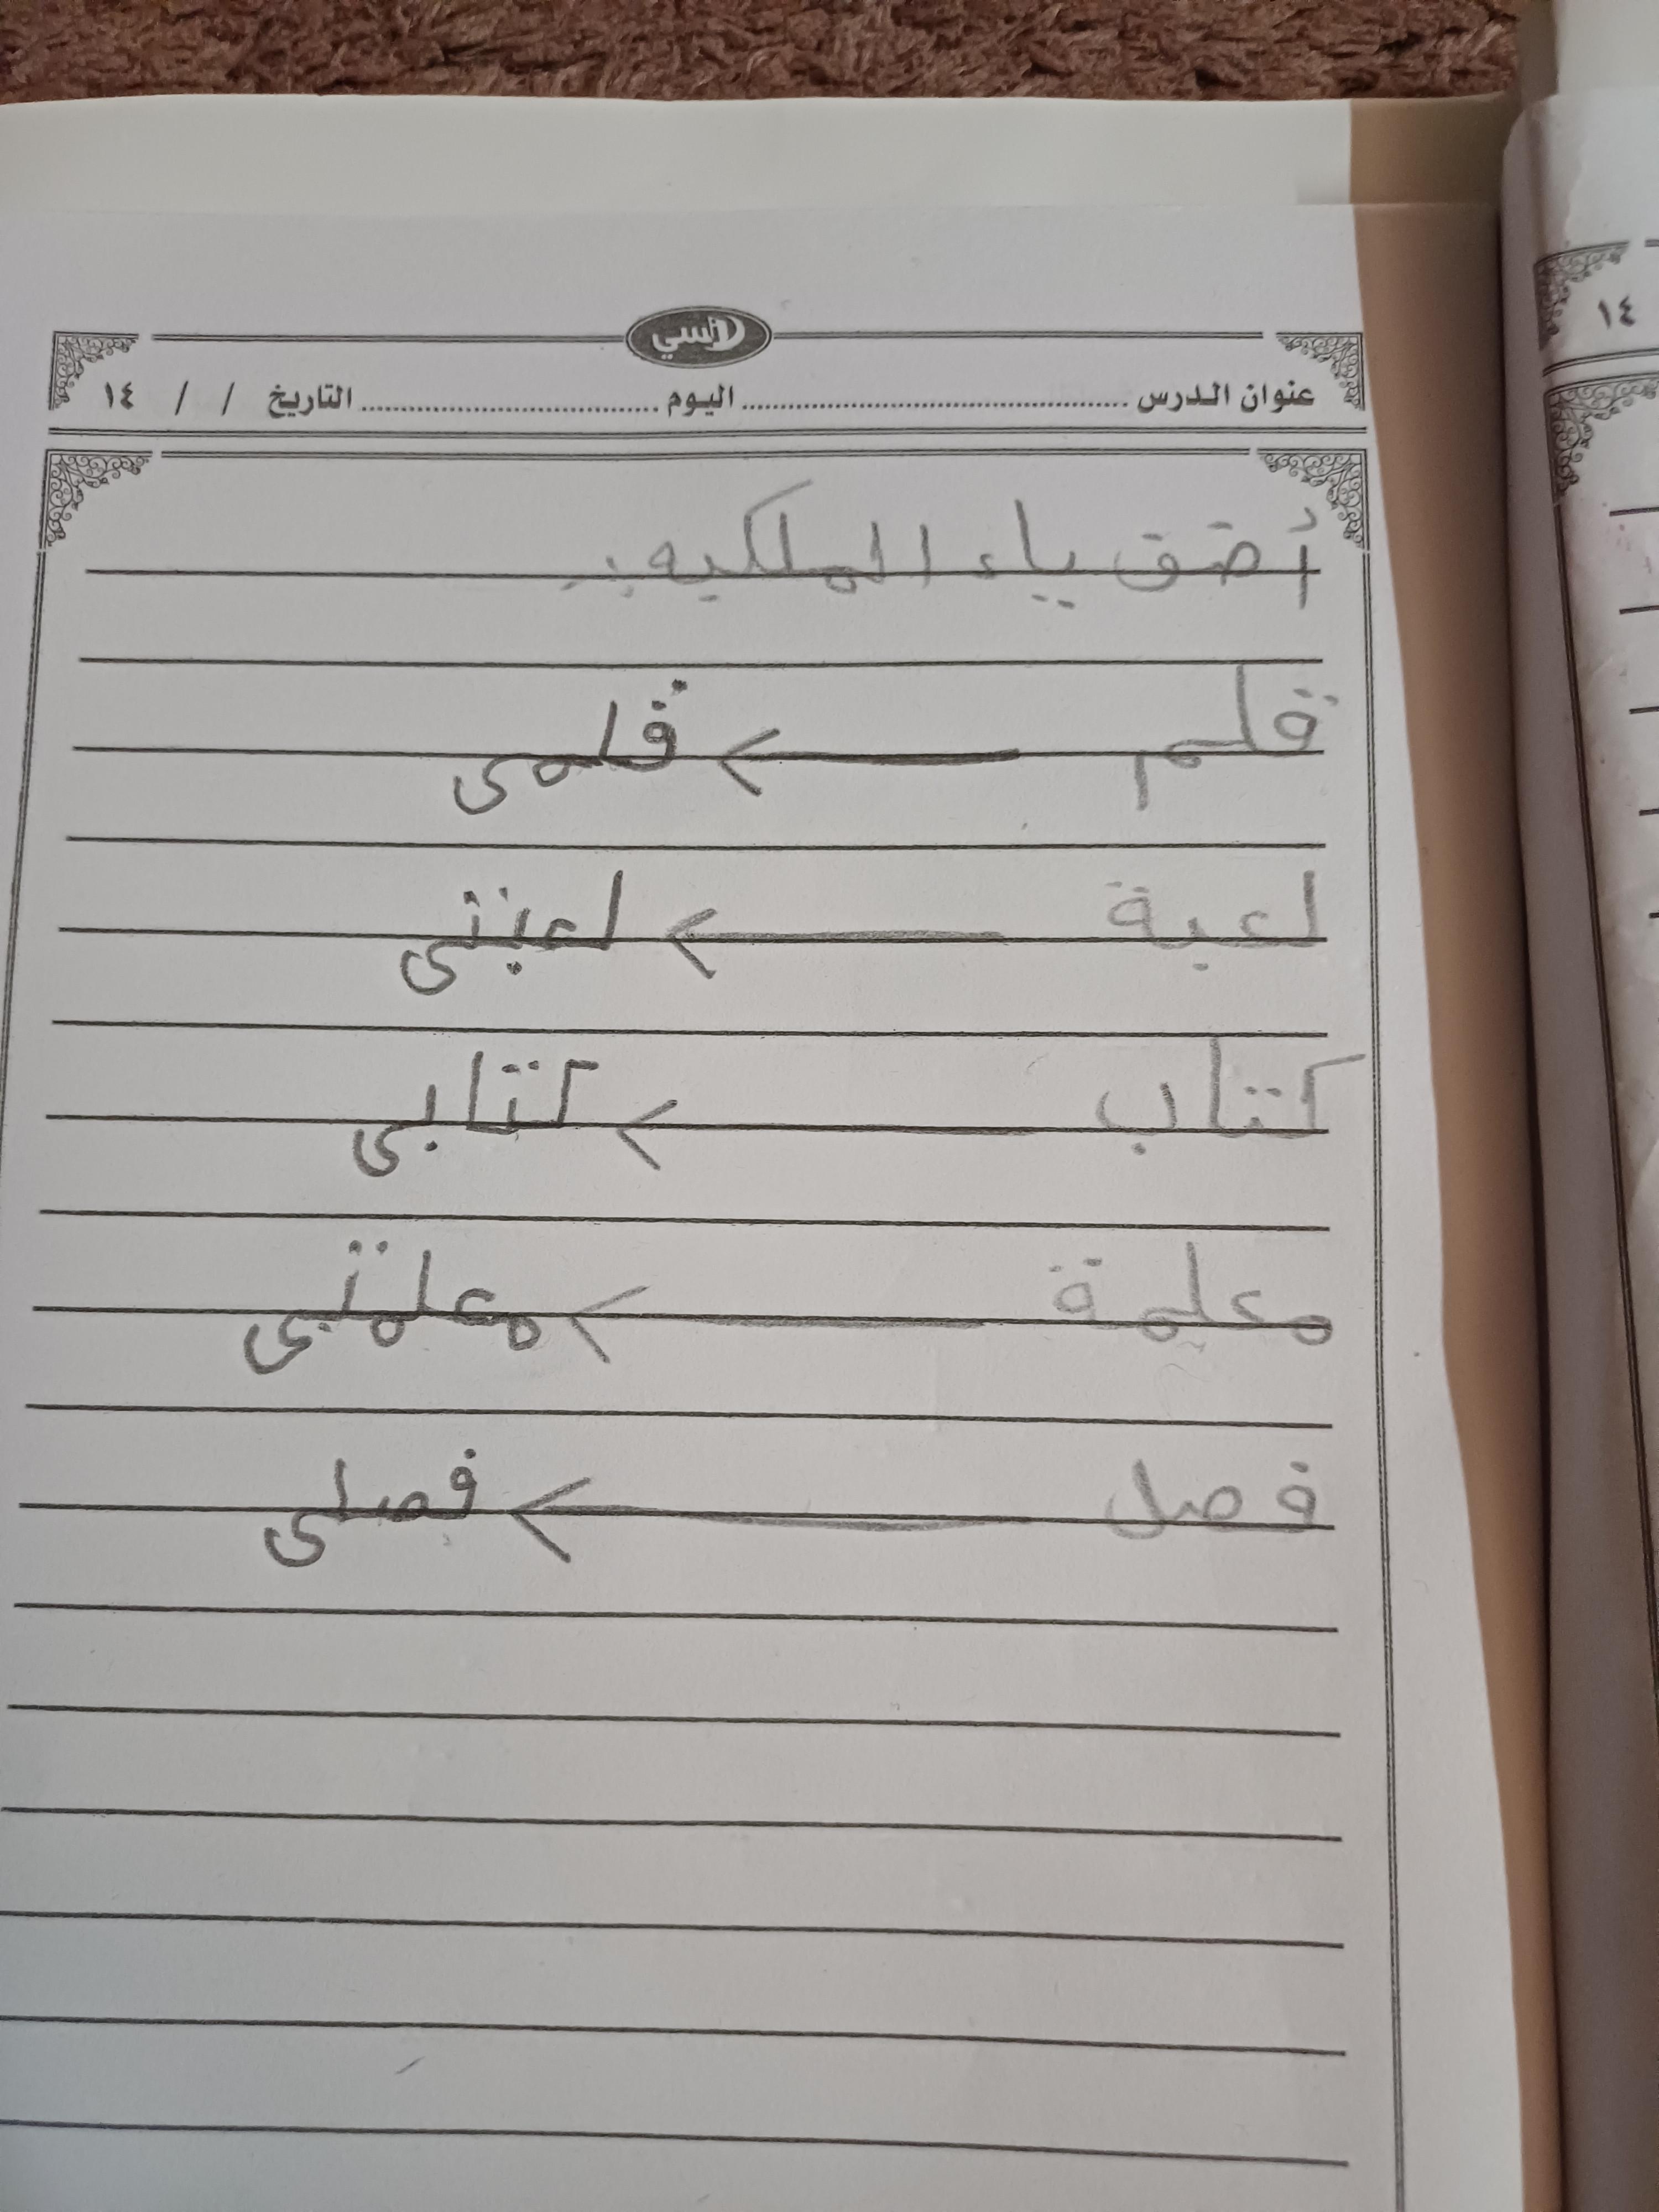 كراسي
عنوان الدرس .................... اليوم .................... التاريخ / / ١٤
أضف ياء الملكيه :-
قلم ← قلمى
لعبة ← لعبتى
كتاب ← كتابى
معلمة ← معلمتى
فصل ← فصلى
١٤